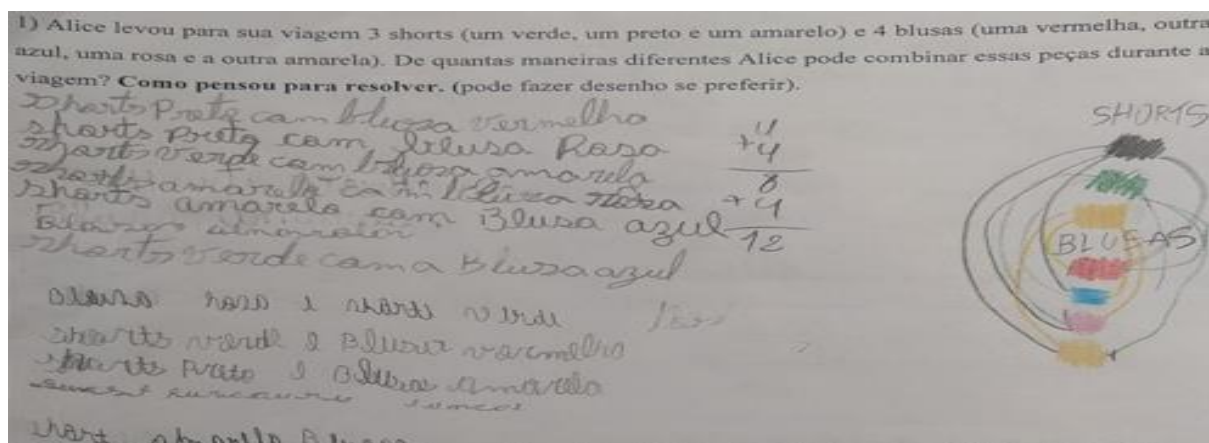 1) Alice levou para sua viagem 3 shorts (um verde, um preto e um amarelo) e 4 blusas (uma vermelha, outra
azul, uma rosa e a outra amarela). De quantas maneiras diferentes Alice pode combinar essas peças durante a
viagem? Como pensou para resolver. (pode fazer desenho se preferir).
shorts Preto com blusa vermelho
shorts preto com blusa Rosa
shorts verde com blusa amarela
shorts amarelo com blusa rosa
shorts amarelo com Blusa azul
shorts verde com a Blusa azul
blusa roso e shorts verde
shorts verde e Blusa varmelho
shorts prato e blusa amarela
4
+4
8
+4
12
SHORTS
BLUSAS